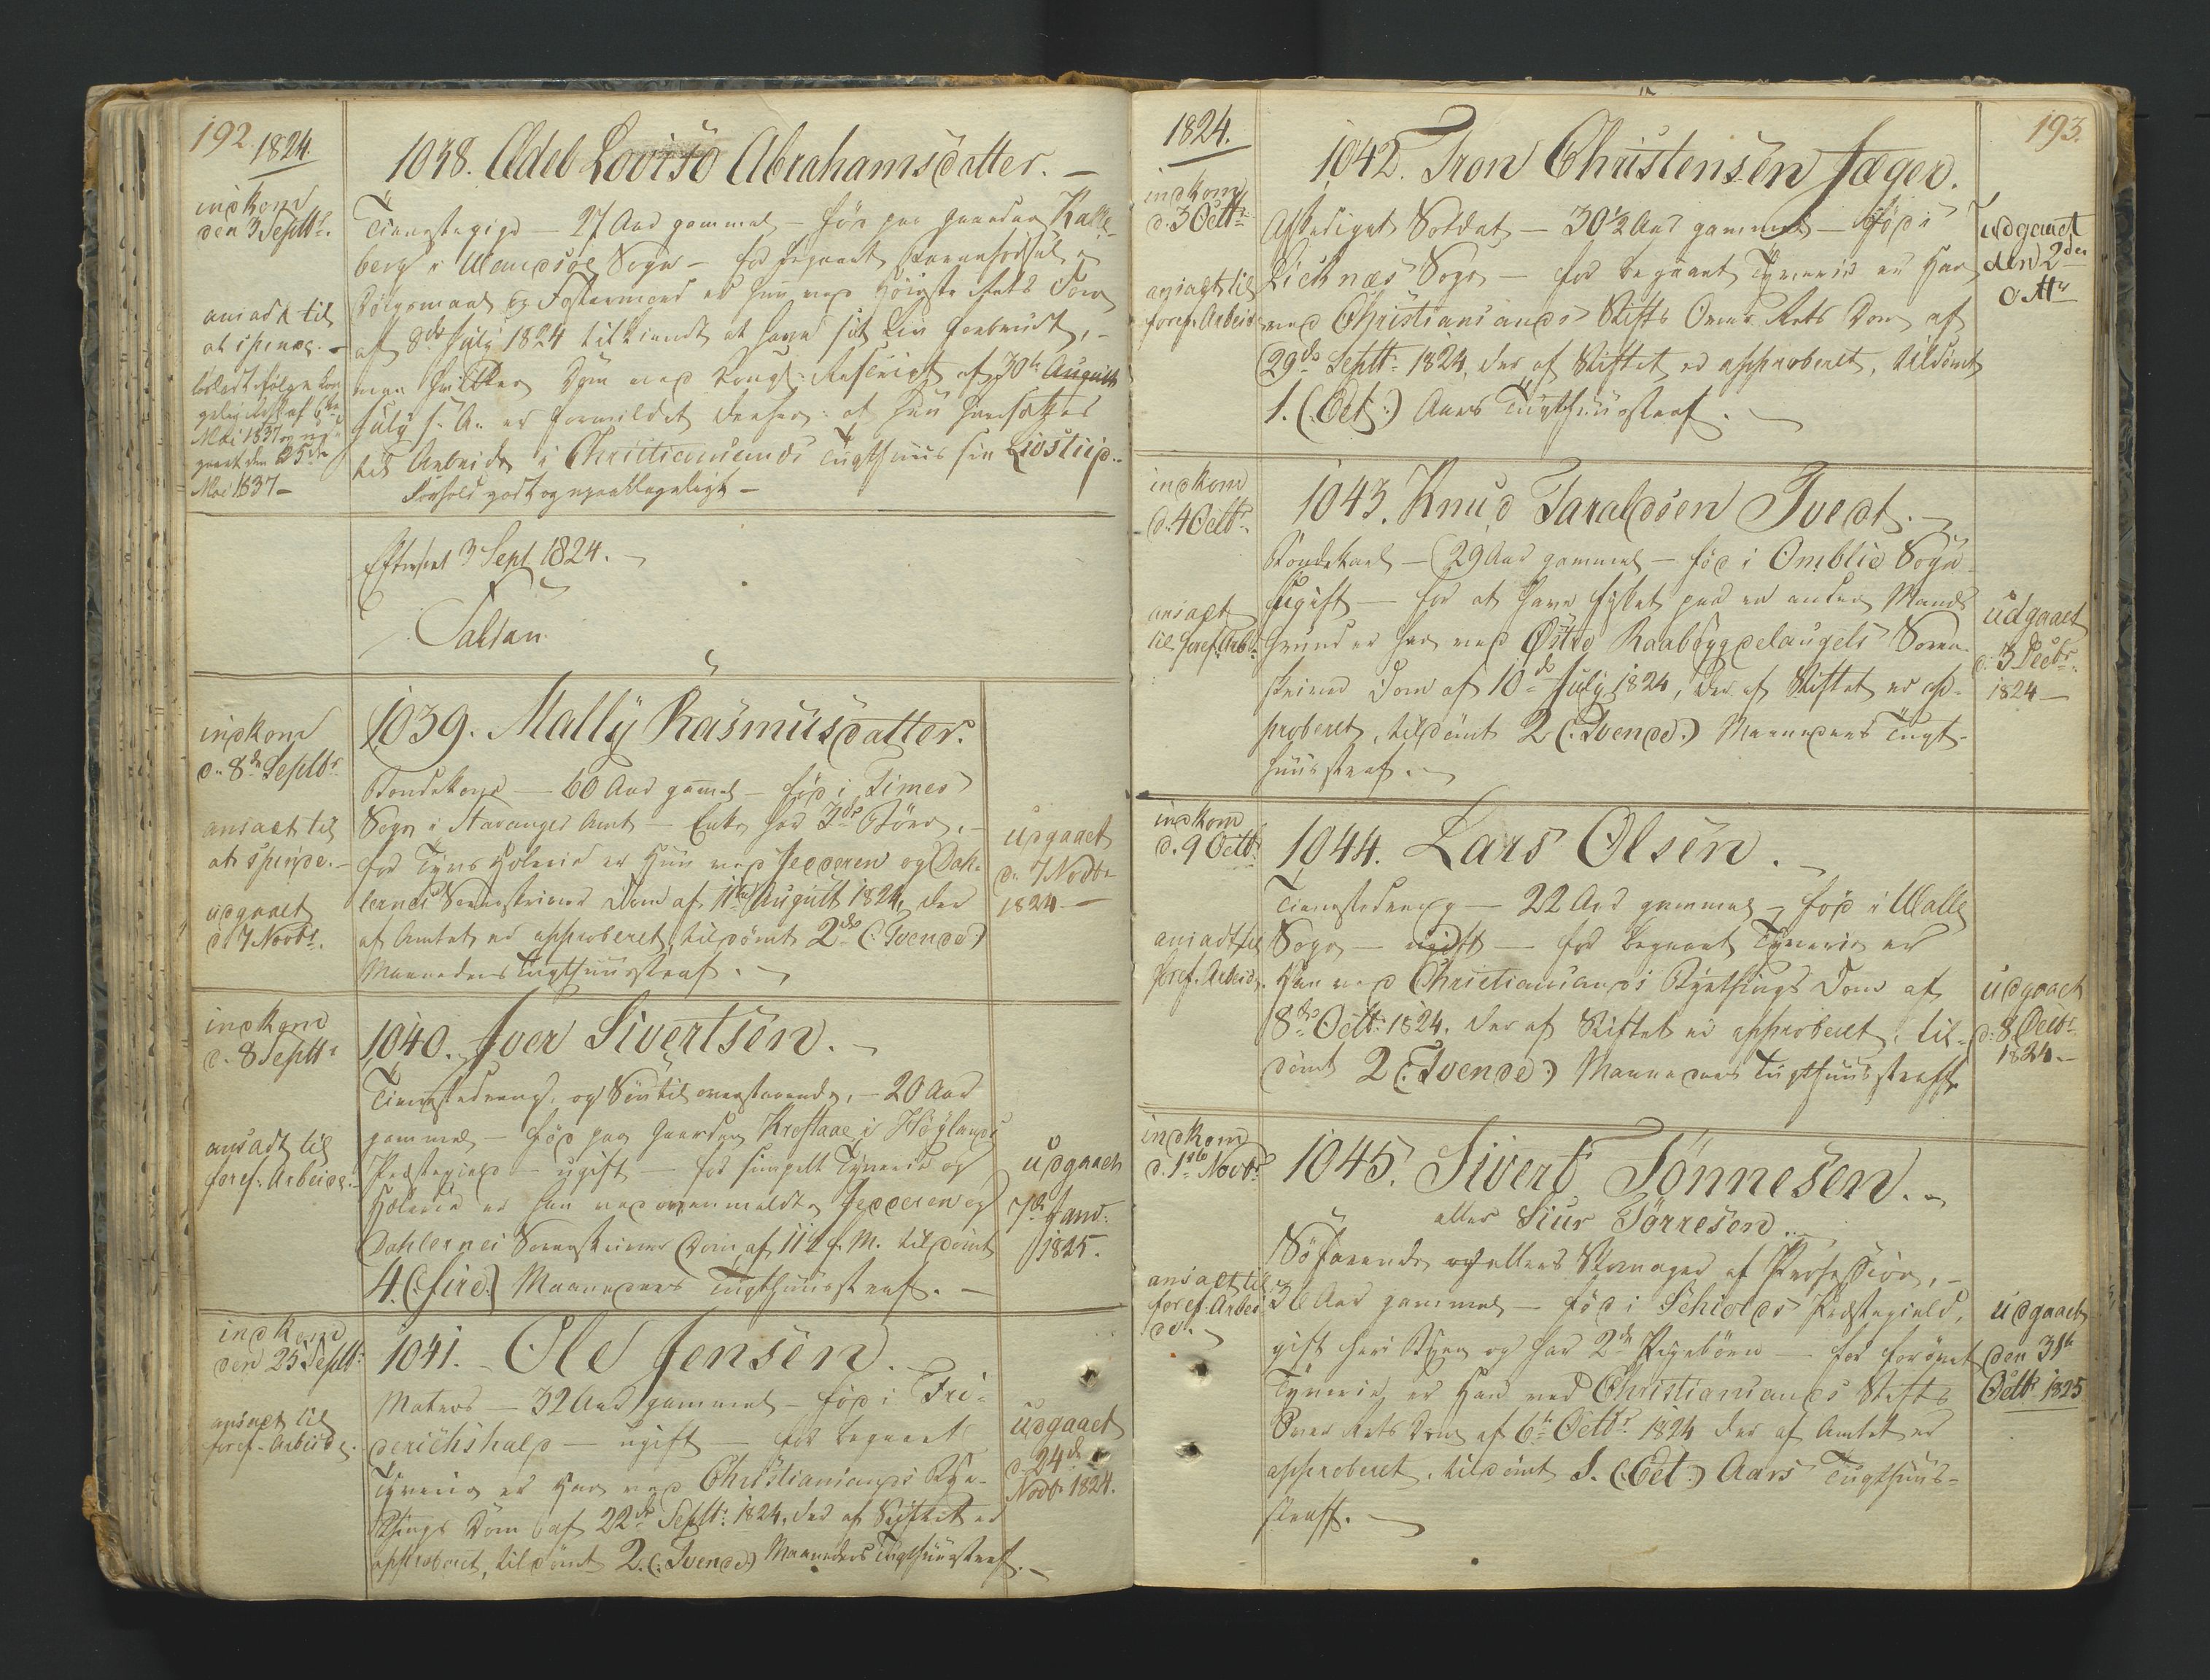 192.
1824.
indkom
den 3 Septbr.
ansadt til
at spinde. -
løsladt ifølge kon
gelig Resl. af 6te
Mai 1837 og ud
gaaet den 25de
Mai 1837 -
1038. Adel Lovise Abrahamsdatter. -
Tienestepige - 27 Aar gammel - født paa Gaarden Kalle-
berg i Wandsøe Sogn - for begaaet Barnefødsel i
Dølgsmaal og Fostermord er hun ved Høieste Rets Dom
af 8de July 1824 tilkiendt at have sit Liv forbrudt, -
men hvilken Dom ved Kongl. Rescript af 30te August
July s. A. er formildet derhen: at hun hensættes
til Arbeide i Christiansands Tugthuus sin Livstiid. -
Forhold godt og upaaklageligt -
Efterseet 3 Sept 1824. -
indkom
d. 8de Septbr
ansadt til
at spinde. -
udgaaet
d. 7 Novbr.
1039. Mally Rasmusdatter.
Bondekone - 60 Aar gamel - født i Times
Sogn i Stavanger Amt - Enke har 3de Børn, -
for Tyvs Hæleri er hun ved Jedderen og Dah-
lernes Sorenskriver Dom af 11te August 1824, der
af Amtet er approberet, tildømt 2de (: Tvende)
Maaneders Tugthuusstraf. -
udgaaet
d. 7 Novbr
1824 -
indkom
d. 8 Septbr
ansadt til
foref. Arbeide. -
1040. Iver Sivertsen. -
Tienestedreng, og Søn til ovenstaaende, - 20 Aar
gammel - født paa Gaarden Kroslaae i Høylands
Præstegield - ugift - for simpelt Tyverie og
Hælerie er han ved ovenmeldte Jedderen og
Dahlernes Sorenskriver Dom af 11te f. M. tildømt
4 (: fire) Maaneders Tugthuusstraf. -
udgaaet
7de Janr.
1825.
indkom
den 25 Septbr
ansadt til
foref. Arbeide.
1041. - Ole Jensen. -
Matros - 32 Aar gammel - født i Fri-
derichshald - ugift - for begaaet
Tyverie er han ved Christiansands Bye-
things Dom af 22de Septbr: 1824, der af Stiftet er
approberet, tildømt 2. (: Tvende) Maaneders Tugthuusstraf. -
udgaaet
d. 24de
Novbr 1824.
1824.
193.
indkom
d. 3 Octbr
ansadt til
foref. Arbeide
1042. Tron Christensen Jæger.
Afskediget Soldat - 30 1/2 Aar gammel - født i
Liehnæs Sogn - for begaaet Tyverie er han
ved Christiansands Stifts Over Rets Dom af
29de Septbr: 1824, der af Stiftet er approberet, tildømt
1. (: Eet :) Aars Tugthuusstraf. -
udgaaet
den 2den
Octbr
indkom
d. 4 Octbr
ansadt
til foref. Arbd.
1043. Knud Taraldsen Tvedt. -
Bondekarl - 29 Aar gammel - født i Omblie Sogn
ugift - for at have fisket paa en anden Mands
Grund er han ved Østre Raabøygdelaugets Soren-
skriver Dom af 10de July 1824, der af Stiftet er ap-
proberet, tildømt 2 (: Tvende :) Maaneders Tugt-
huusstraf. -
udgaaet
d. 3 Decbr.
1824 -
indkom
d. 9 Octbr
ansadt til
foref. Arbeide.
1044. Lars Olsen. -
Tienestedreng - 22 Aar gammel - født i Walle
Sogn - ugift - for begaaet Tyverie er
han ved Christiansands Byethings Dom af
8de Octbr: 1824, der af Stiftet er approberet, til-
dømt 2 (: Tvende :) Maaneders Tugthuusstraf.
udgaaet
d: 8 Decbr.
1824. -
indkom
d. 1ste Novbr
ansadt til
foref. Arbei
de. -
1045. Sivert Tønnesen. -
eller Siur Tørresen. -
Søfarende og ellers Skomager af Profession, -
36 Aar gammel - født i Schiolds Præstegield,
gift her i Byen og har 2de Pigebørn - for forøvet
Tyverie er han ved Christiansands Stifts
Over Rets Dom af 6te Octbr 1824 der af Amtet er
approberet, tildømt 1. (: Eet :) Aars Tugthuus-
straff. -
udgaaet
den 31te
Octbr 1825